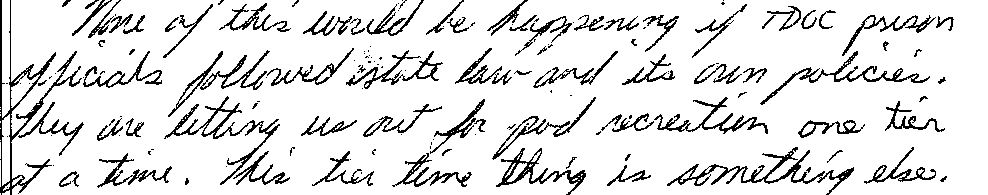 None of this would be happening if TDOC prison
officials followed state law and its own policies.
They are letting us out for pod recreation one tier
at a time. This tier time thing is something else.